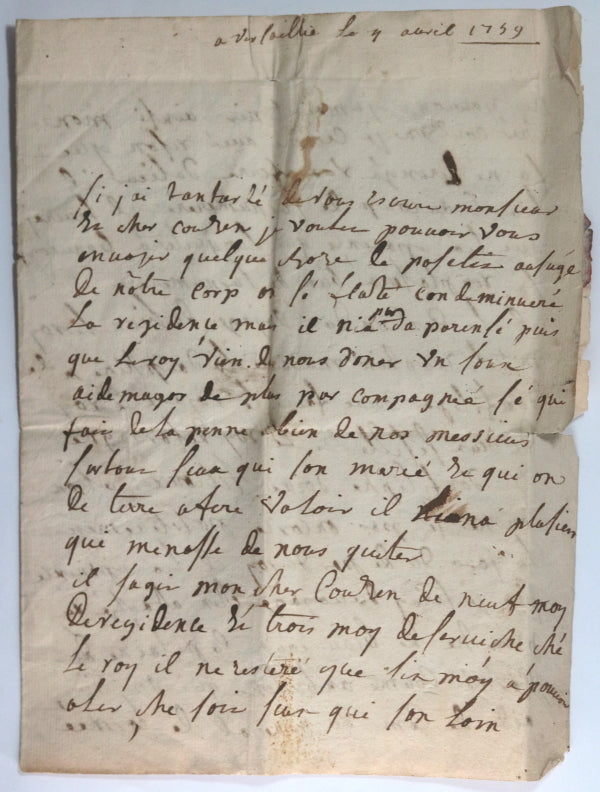 a versaillie le 7 avril 1759
si j'ai tantarté de vous escrire monsieur
et cher couzen je voules pouvoir vous
envoyer quelque choze de positis ausugé
de nôtre corp on sé flaté con deminueré
la regidence mais il nia pas da parensé puis
que le roy vien de nous doner un soux
aide magor de plus par compagnié sé qui
fair de la penne abien de nos messieurs
surtout seux qui son marié et qui on
de terre afere valoir il niana plusieurs
qui menasse de nous quiter
il sagir mon cher couzen de neuf moy
de regidence et trois moy de serviche ché
le roy il ne resteré que six moy a pouvoir
aler che soix seux qui son loin